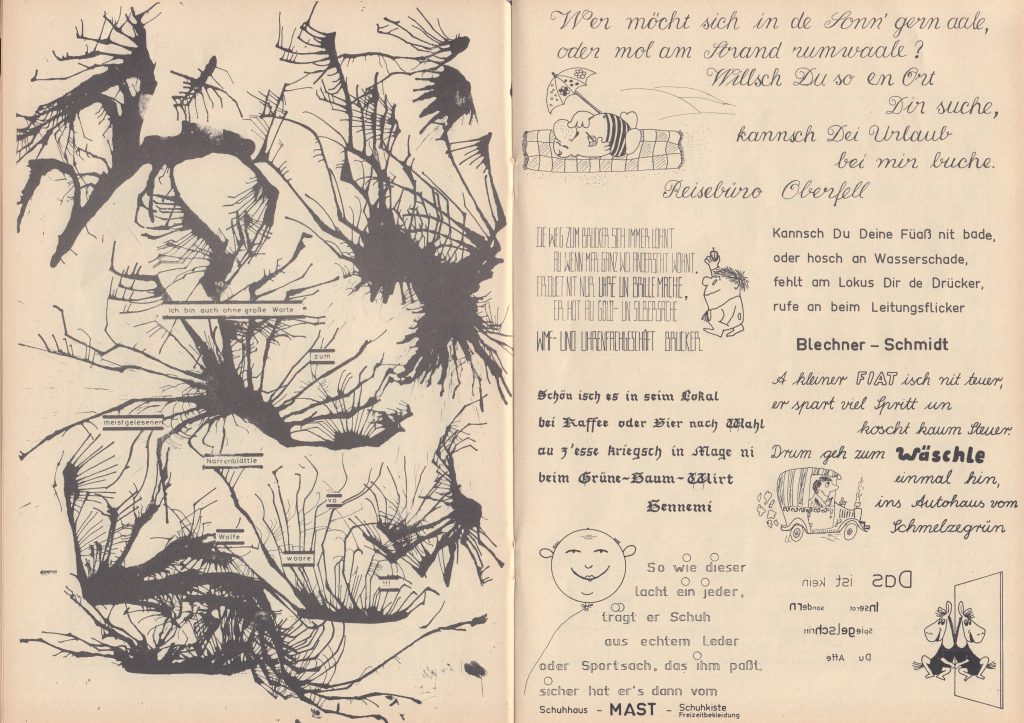 Ich bin auch ohne große Worte
zum
meistgelesenen
Narrenblättle
vo
Wolfe
woore
!!!
Wer möcht sich in de Sonn' gern aale,
oder mol am Strand rumwaale?
Willsch Du so en Ort
Dir suche,
kannsch Dei Urlaub
bei mir buche.
Reisebüro Oberfell
DE WEG ZUM BRUCKER SICH IMMER LOHNT
AU WENN MER GANZ WO ANDERSCHT WOHNT,
ER DUET NIT NUR UHRE UN BRILLE MACHE,
ER HOT AU GOLD- UN SILBERSACHE
WMF- UND UHRENFACHGESCHÄFT BRUCKER
Kannsch Du Deine Füaß nit bade,
oder hosch an Wasserschade,
fehlt am Lokus Dir de Drücker,
rufe an beim Leitungsflicker
Blechner - Schmidt
Schön isch es in seim Lokal
bei Kaffee oder Bier nach Wahl
au z'esse kriegsch in Mage ni
beim Grüne-Baum-Wirt
Hennemi
A kleiner FIAT isch nit teuer,
er spart viel Spritt un
koscht kaum Steuer.
Drum geh zum Wäschle
einmal hin,
ins Autohaus vom
Schmelzegrün
So wie dieser
lacht ein jeder,
trägt er Schuh
aus echtem Leder
oder Sportsach, das ihm paßt,
sicher hat er's dann vom
Schuhhaus - MAST - Schuhkiste
Freizeitbekleidung
Das ist kein
Inserat sondern
Spiegelschrift
Du Affe